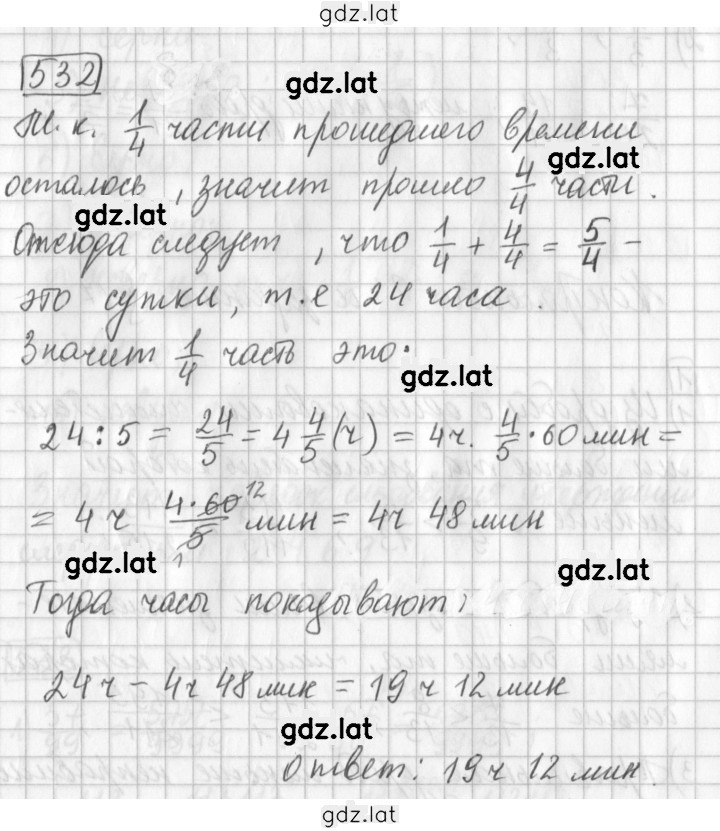 gdz.lat
532
gdz.lat
Т.к. 1/4 части прошедшего времени
gdz.lat
осталось, значит прошло 4/4 части.
gdz.lat
Отсюда следует, что 1/4 + 4/4 = 5/4 -
это сутки, т.е 24 часа.
Значит 1/4 часть это:
gdz.lat
24 : 5 = 24/5 = 4 4/5 (ч) = 4ч. 4/5 · 60 мин =
= 4 ч 4·60 12/5 1 мин = 4ч 48 мин
gdz.lat
gdz.lat
Тогда часы показывают:
24ч - 4ч 48 мин = 19 ч 12 мин
gdz.lat
Ответ: 19 ч 12 мин.
gdz.lat